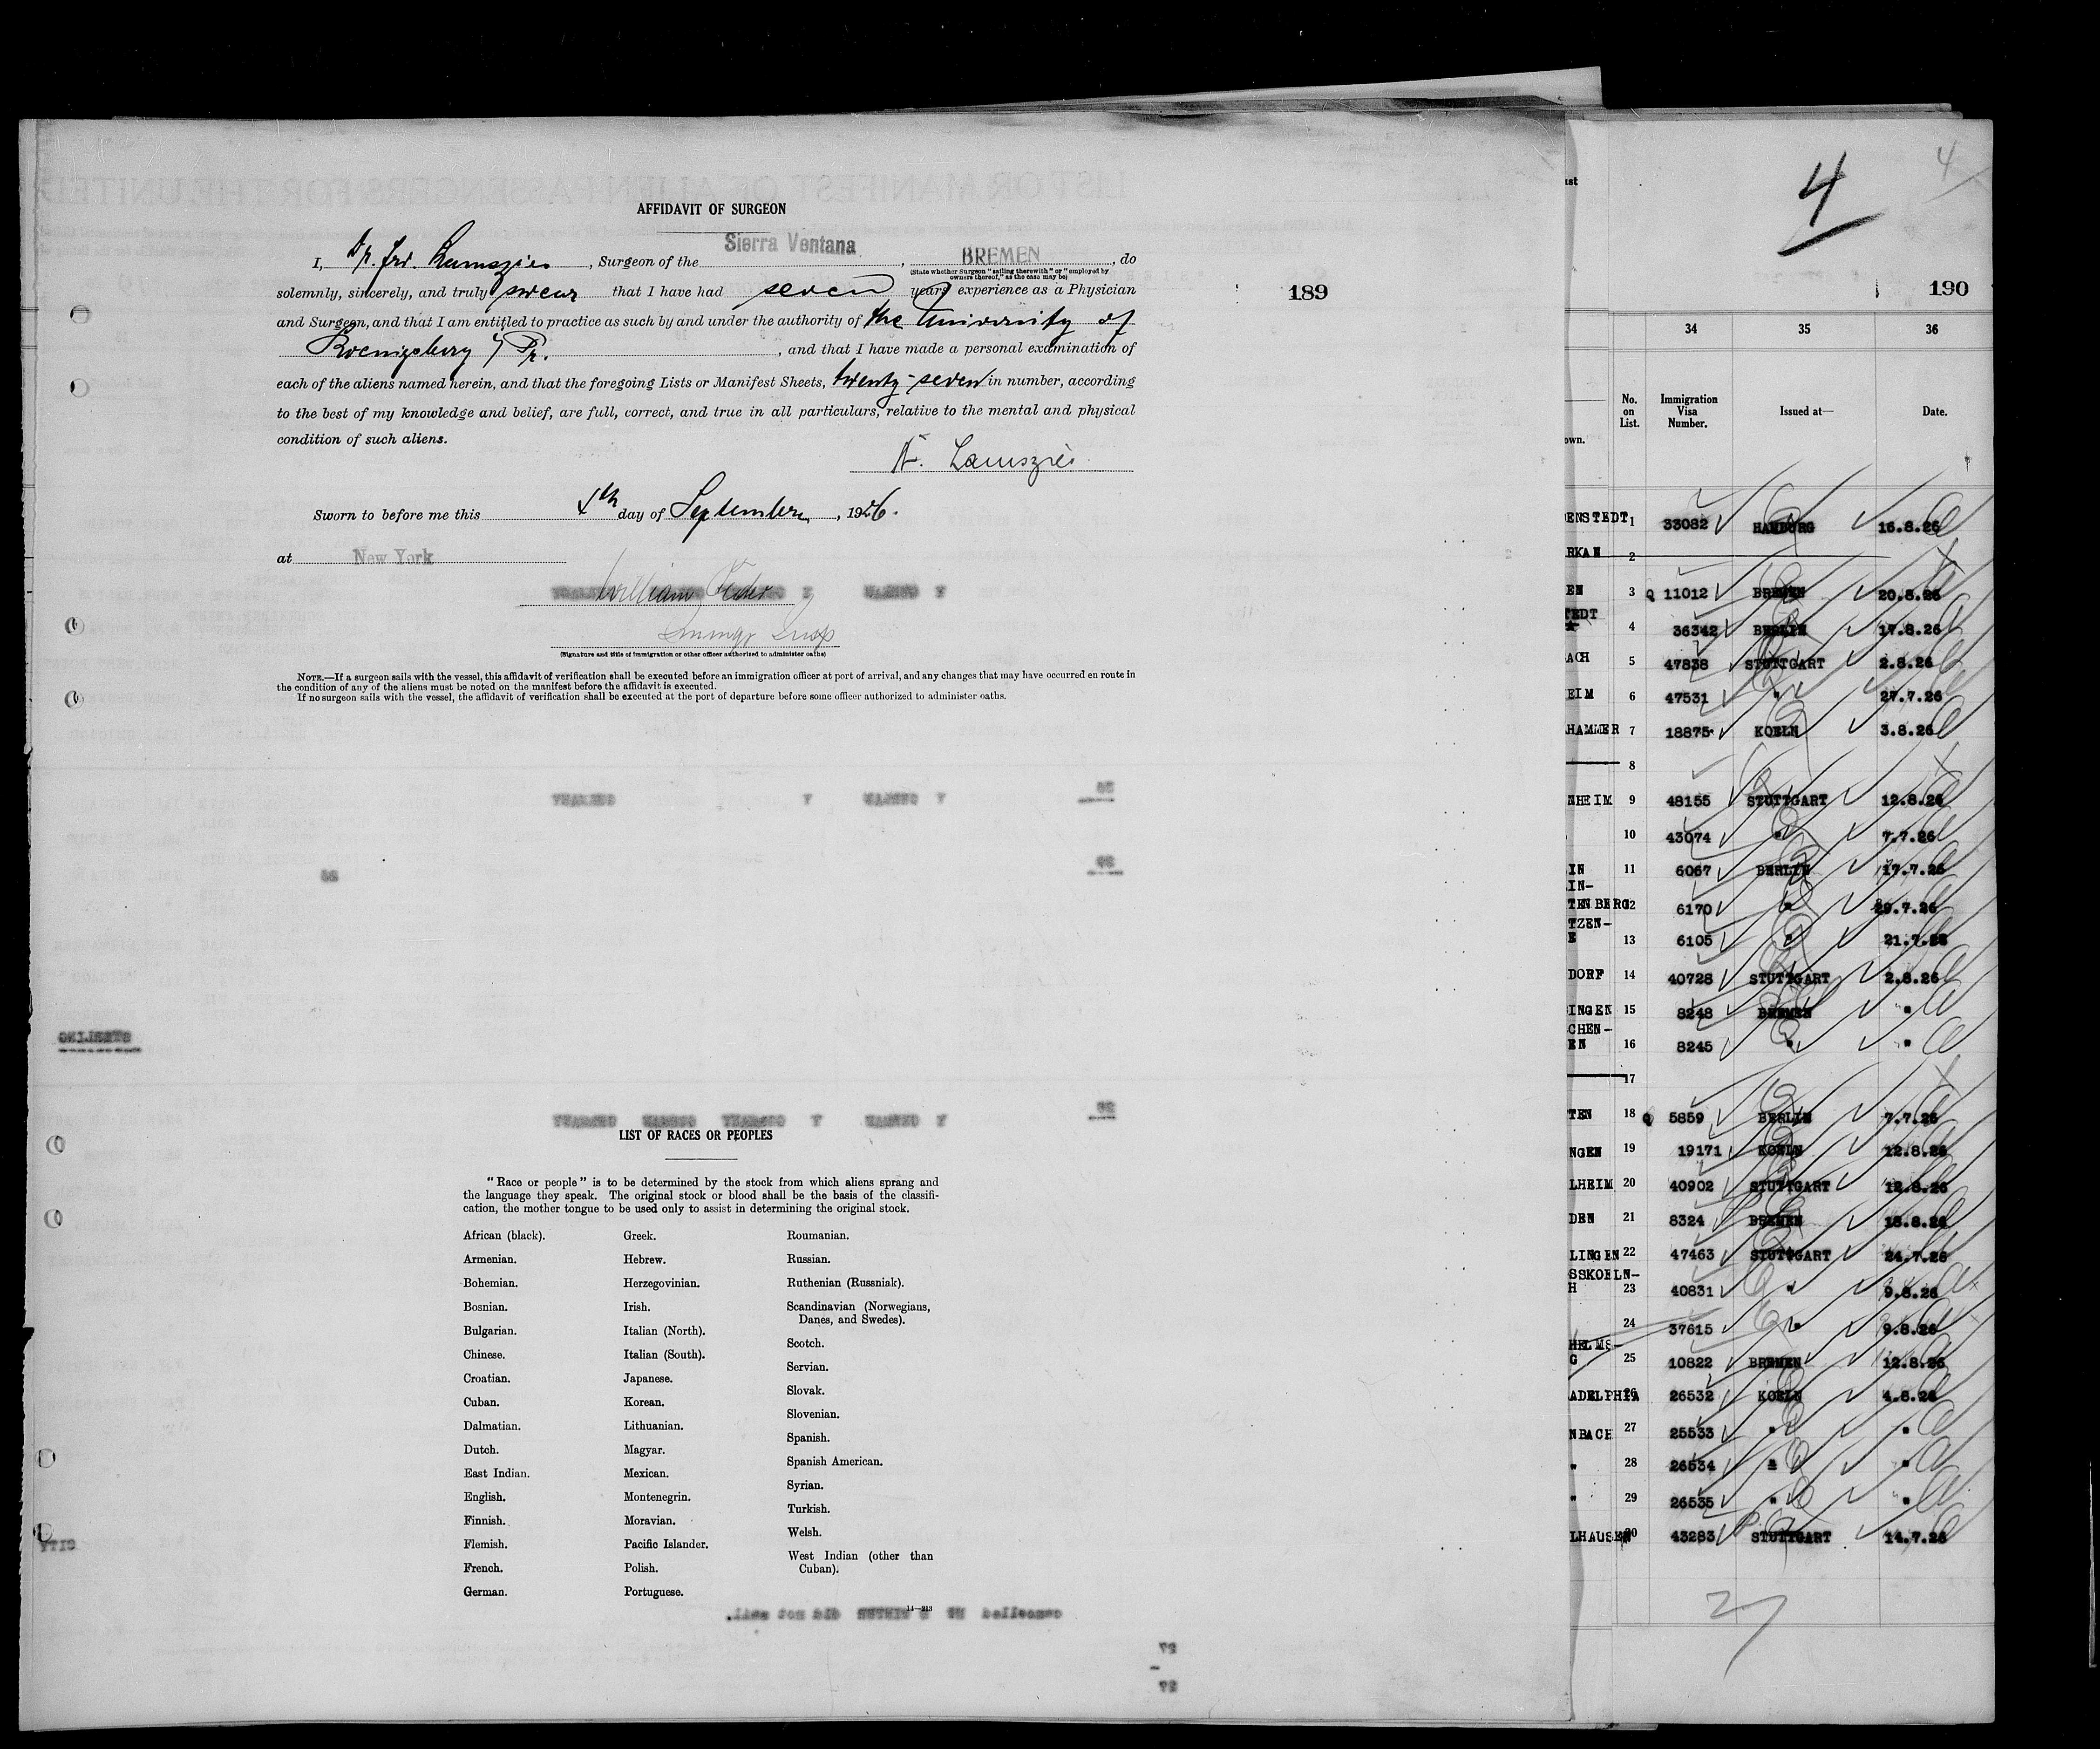 AFFIDAVIT OF SURGEON
I, Dr. Frd. Lamszies, Surgeon of the Sierra Ventana, BREMEN, do
(State whether Surgeon "sailing therewith" or "employed by
owners thereof," as the case may be)
solemnly, sincerely, and truly swear that I have had seven years experience as a Physician
and Surgeon, and that I am entitled to practice as such by and under the authority of the University of
Koenigsberg / Pr., and that I have made a personal examination of
each of the aliens named herein, and that the foregoing Lists or Manifest Sheets, twenty-seven in number, according
to the best of my knowledge and belief, are full, correct, and true in all particulars, relative to the mental and physical
condition of such aliens.
Lamszies
Sworn to before me this 4th day of September, 1926.
at New York
William
Immig Insp
(Signature and title of immigration or other officer authorized to administer oaths)
NOTE.—If a surgeon sails with the vessel, this affidavit of verification shall be executed before an immigration officer at port of arrival, and any changes that may have occurred en route in
the condition of any of the aliens must be noted on the manifest before the affidavit is executed.
If no surgeon sails with the vessel, the affidavit of verification shall be executed at the port of departure before some officer authorized to administer oaths.
189
LIST OF RACES OR PEOPLES
"Race or people" is to be determined by the stock from which aliens sprang and
the language they speak. The original stock or blood shall be the basis of the classifi-
cation, the mother tongue to be used only to assist in determining the original stock.
African (black).
Armenian.
Bohemian.
Bosnian.
Bulgarian.
Chinese.
Croatian.
Cuban.
Dalmatian.
Dutch.
East Indian.
English.
Finnish.
Flemish.
French.
German.
Greek.
Hebrew.
Herzegovinian.
Irish.
Italian (North).
Italian (South).
Japanese.
Korean.
Lithuanian.
Magyar.
Mexican.
Montenegrin.
Moravian.
Pacific Islander.
Polish.
Portuguese.
Roumanian.
Russian.
Ruthenian (Russniak).
Scandinavian (Norwegians,
Danes, and Swedes).
Scotch.
Servian.
Slovak.
Slovenian.
Spanish.
Spanish American.
Syrian.
Turkish.
Welsh.
West Indian (other than
Cuban).
14—213
4
4
190
34 35 36
No. on List. Immigration Visa Number. Issued at— Date.
own.
ENSTEDT 1 33082 HAMBURG 16.8.26
RKAN 2
EN 3 Q 11012 BREMEN 20.8.26
TEDT 4 36342 BERLIN 17.8.26
ACH 5 47838 STUTTGART 2.8.26
EIM 6 47531 " 27.7.26
HAMMER 7 18875 KOELN 3.8.26
8
NHEIM 9 48155 STUTTGART 12.8.26
10 43074 " 7.7.26
YN 11 6067 BERLIN 17.7.26
IN-
TENBERG 12 6170 " 29.7.26
TZEN-
E 13 6105 " 21.7.26
DORF 14 40728 STUTTGART 2.8.26
INGEN 15 8248 BREMEN "
CHEN-
EN 16 8245 " "
17
TEN 18 Q 5859 BERLIN 7.7.26
NGEN 19 19171 KOELN 12.8.26
LHEIM 20 40902 STUTTGART 12.8.26
DEN 21 8324 BREMEN 18.8.26
LINGEN 22 47463 STUTTGART 24.7.26
SSKOELN-
H 23 40831 " 9.8.26
24 37615 " 9.8.26
HELMS-
G 25 10822 BREMEN 12.8.26
ADELPHIA 26 26532 KOELN 4.8.26
NBACH 27 25533 " "
" 28 26534 " "
" 29 26535 " "
LHAUSEN 30 43283 STUTTGART 14.7.26
27